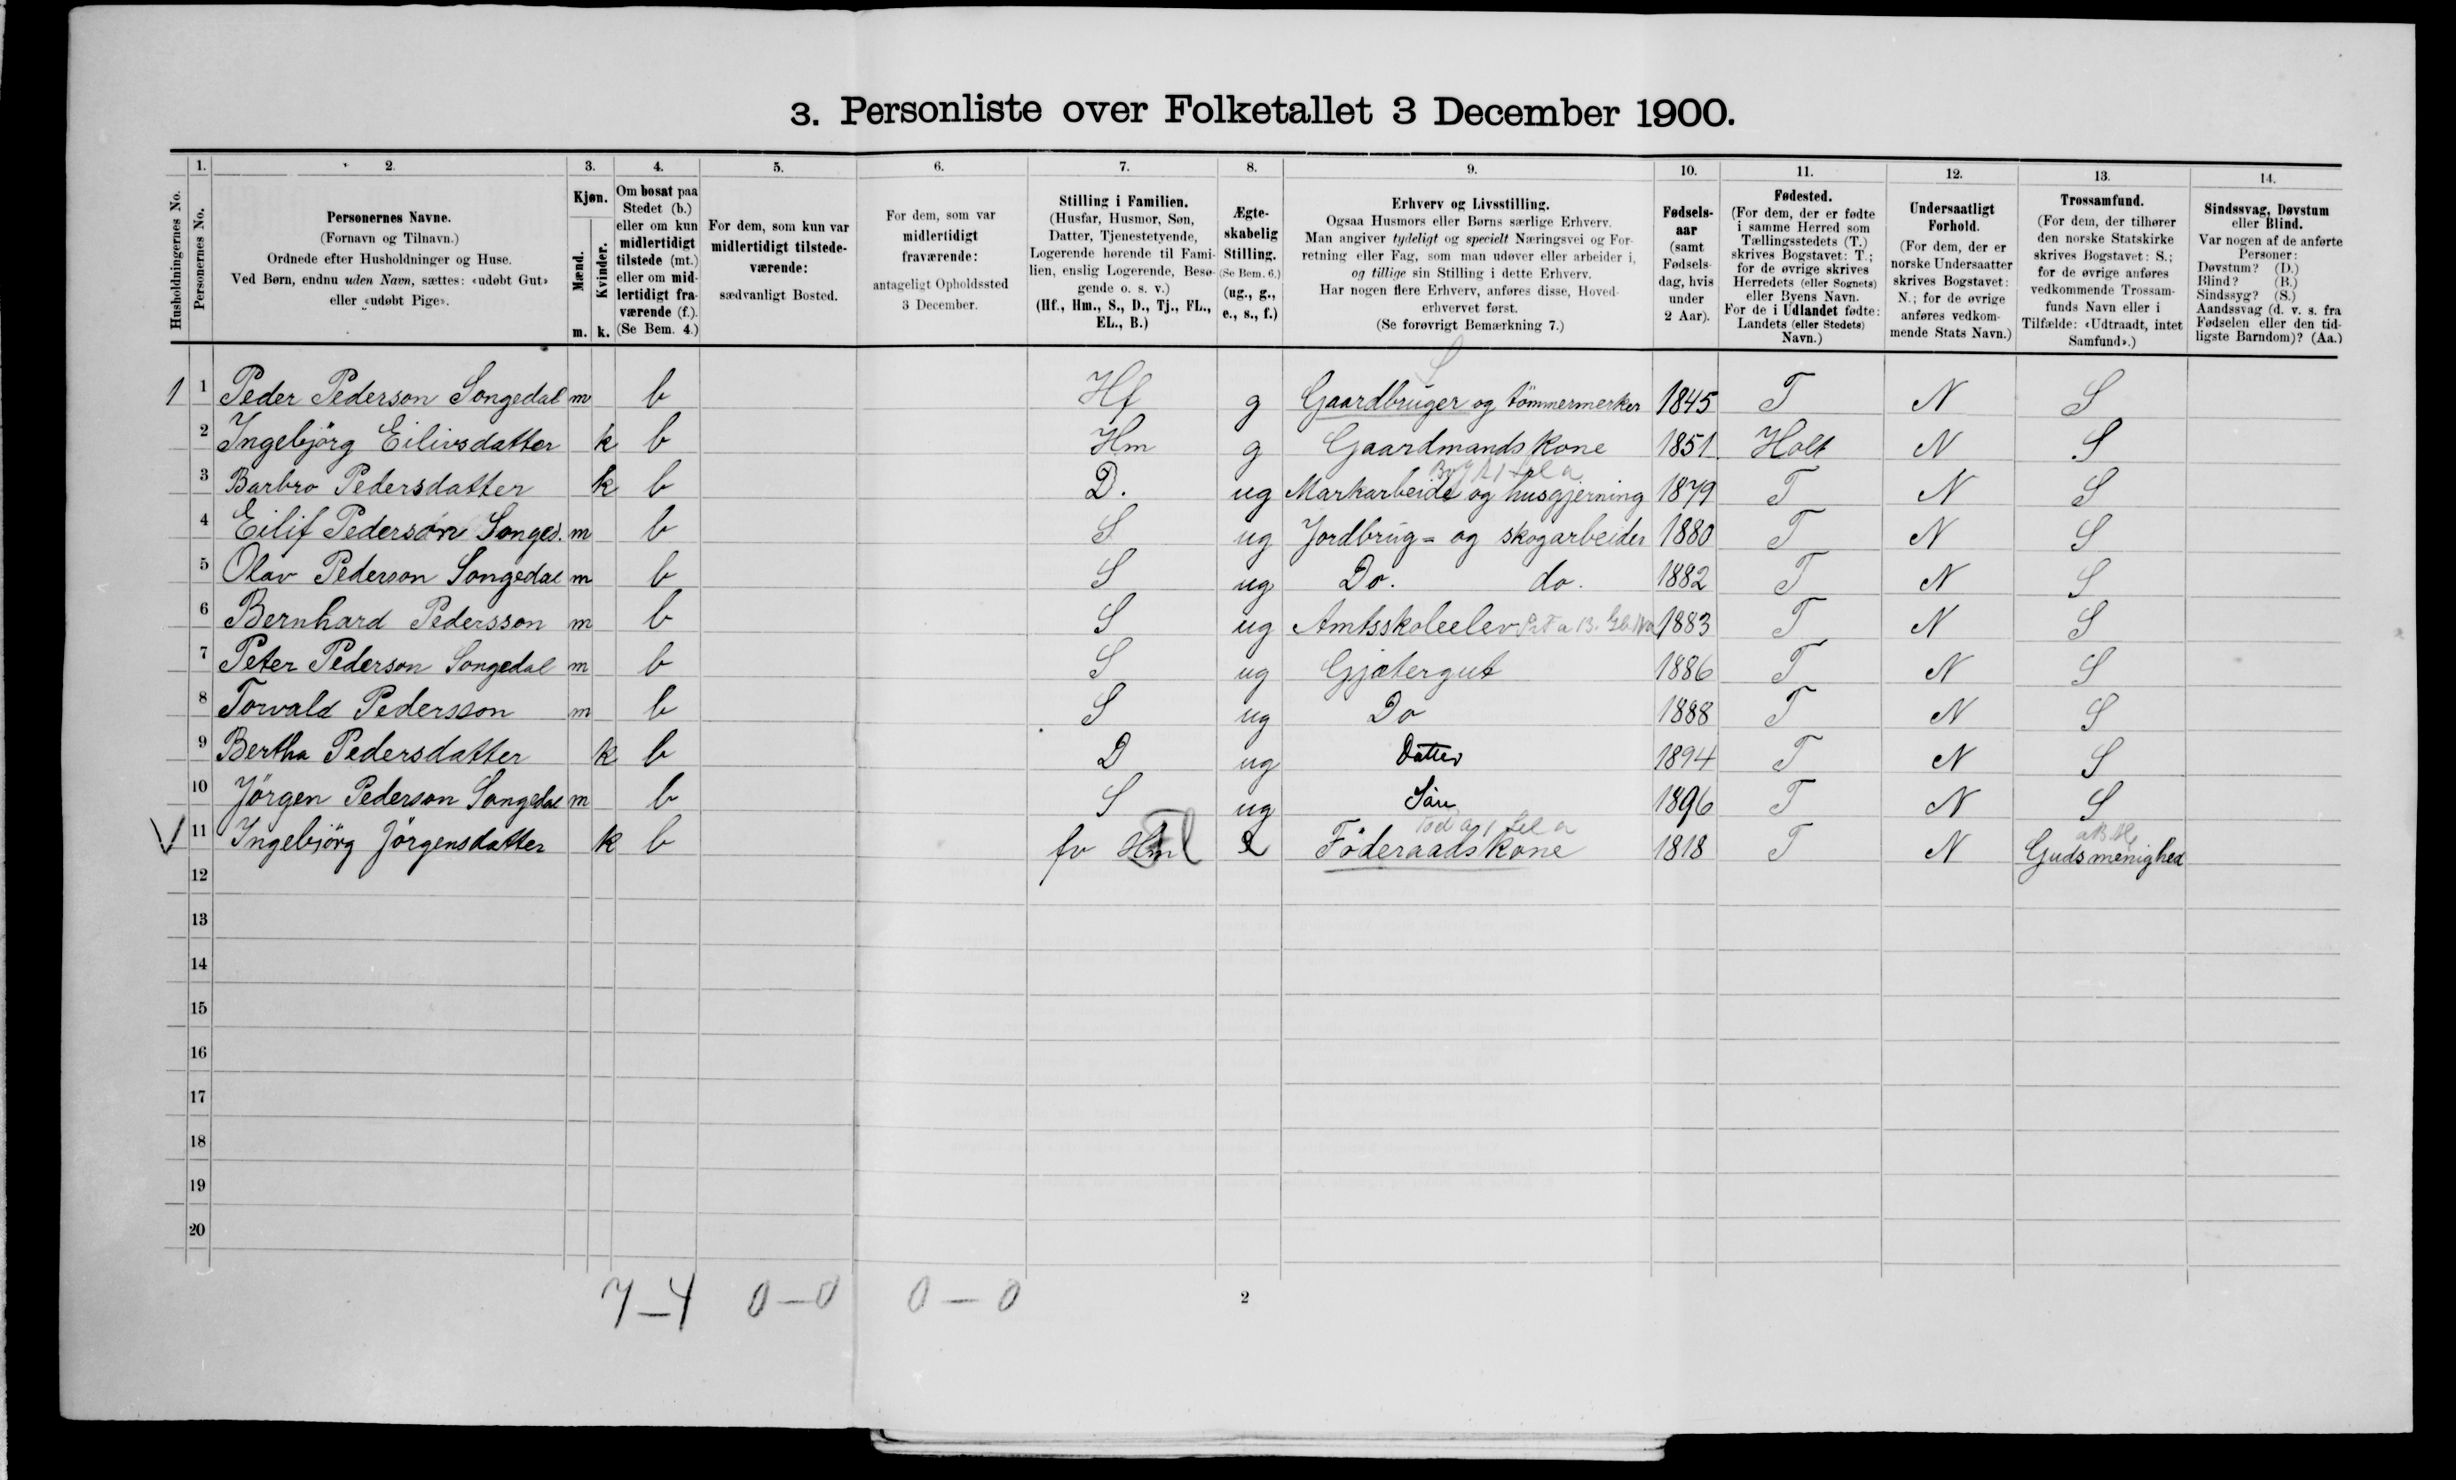 3. Personliste over Folketallet 3 December 1900.
Husholdningernes No.
1.
Personernes No.
2.
Personernes Navne.
(Fornavn og Tilnavn.)
Ordnede efter Husholdninger og Huse.
Ved Børn, endnu uden Navn, sættes: «udøbt Gut»
eller „udøbt Pige».
3.
Kjøn.
Mænd.
Kvinder.
m. k.
4.
Om bosat paa
Stedet (b.)
eller om kun
midlertidigt
tilstede (mt.)
eller om mid-
lertidigt fra-
værende (f.).
(Se Bem. 4.)
5.
For dem, som kun var
midlertidigt tilstede-
værende:
sædvanligt Bosted.
6.
For dem, som var
midlertidigt
fraværende:
antageligt Opholdssted
3 December.
7.
Stilling i Familien.
(Husfar, Husmor, Søn,
Datter, Tjenestetyende,
Logerende hørende til Fami-
lien, enslig Logerende, Besø-
gende o. s. v.)
(Hf., Hm., S., D., Tj., FL.,
EL., B.)
8.
Ægte-
skabelig
Stilling.
(Se Bem. 6.)
(ug., g.,
e., s., f.)
9.
Erhverv og Livsstilling.
Ogsaa Husmors eller Børns særlige Erhverv.
Man angiver tydeligt og specielt Næringsvei og For-
retning eller Fag, som man udøver eller arbeider i,
og tillige sin Stilling i dette Erhverv.
Har nogen flere Erhverv, anføres disse, Hoved-
erhvervet først.
(Se forøvrigt Bemærkning 7.)
10.
Fødsels-
aar
(samt
Fødsels-
dag, hvis
under
2 Aar).
11.
Fødested.
(For dem, der er fødte
i samme Herred som
Tællingsstedets (T.)
skrives Bogstavet: T.;
for de øvrige skrives
Herredets (eller Sognets)
eller Byens Navn.
For de i Udlandet fødte:
Landets (eller Stedets)
Navn.)
12.
Undersaatligt
Forhold.
(For dem, der er
norske Undersaatter
skrives Bogstavet:
N.; for de øvrige
anføres vedkom-
mende Stats Navn.)
13.
Trossamfund.
(For dem, der tilhører
den norske Statskirke
skrives Bogstavet: S.;
for de øvrige anføres
vedkommende Trossam-
funds Navn eller i
Tilfælde: «Udtraadt, intet
Samfund».)
14.
Sindssvag, Døvstum
eller Blind.
Var nogen af de anførte
Personer:
Døvstum? (D.)
Blind? (B.)
Sindssyg? (S.)
Aandssvag (d. v. s. fra
Fødselen eller den tid-
ligste Barndom)? (Aa.)
1 1 Peder Pederson Songedal m b Hf g Gaardbruger og tömmermerker 1845 T N S
2 Ingebjörg Eilivsdatter k b Hm g Gaardmandskone 1851 Holt N S
3 Barbro Pedersdatter k b D. ug Markarbeide og husgjerning 1879 T N S
4 Eilif Pederson Songed. m b S ug Jordbrug- og skogarbeider 1880 T N S
5 Olav Pederson Songedal m b S ug Do. do. 1882 T N S
6 Bernhard Pedersson m b S ug Amtsskoleelev 1883 T N S
7 Peter Pederson Songedal m b S ug Gjætergut 1886 T N S
8 Torvald Pedersson m b S ug Do 1888 T N S
9 Bertha Pedersdatter k b D ug Datter 1894 T N S
10 Jörgen Pederson Songedal m b S ug Sön 1896 T N S
11 Ingebjörg Jörgensdatter k b fv Föderaadskone 1818 T N Guds menighed
12
13
14
15
16
17
18
19
20
7-4 0-0 0-0
2